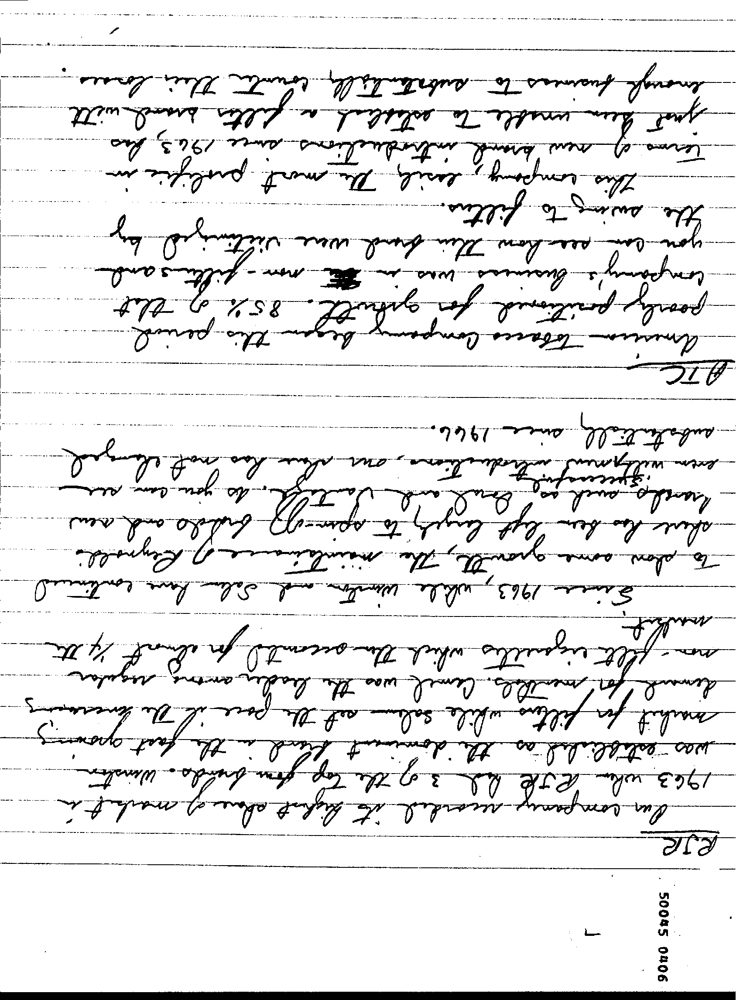 50045 0406
RJR
Our company recorded its highest share of market in
1963 when RJR had 3 of the top four brands. Winston
was established as the dominant brand in the fast growing
market for filters while Salem set the pace in the increasing
demand for menthols. Camel was the leader among regular
non-filter cigarettes which then accounted for almost 1/4 the
market.
Since 1963, while Winston and Salem have continued
to show some growth, the maintenance of Reynolds
share has been left largely to spin-off brands and new
brands such as Doral and Vantage. As you can see
even with most successful introductions, our share has not changed
substantially since 1966.
ATC
American Tobacco Company began this period
poorly positioned for growth. 85% of that
company's business was in non-filters and
you can see how this brand were victimized by
the swing to filters.
This company, easily the most prolific in
terms of new brand introductions since 1963, has
just been unable to establish a filter brand with
enough business to substantially counter their losses.